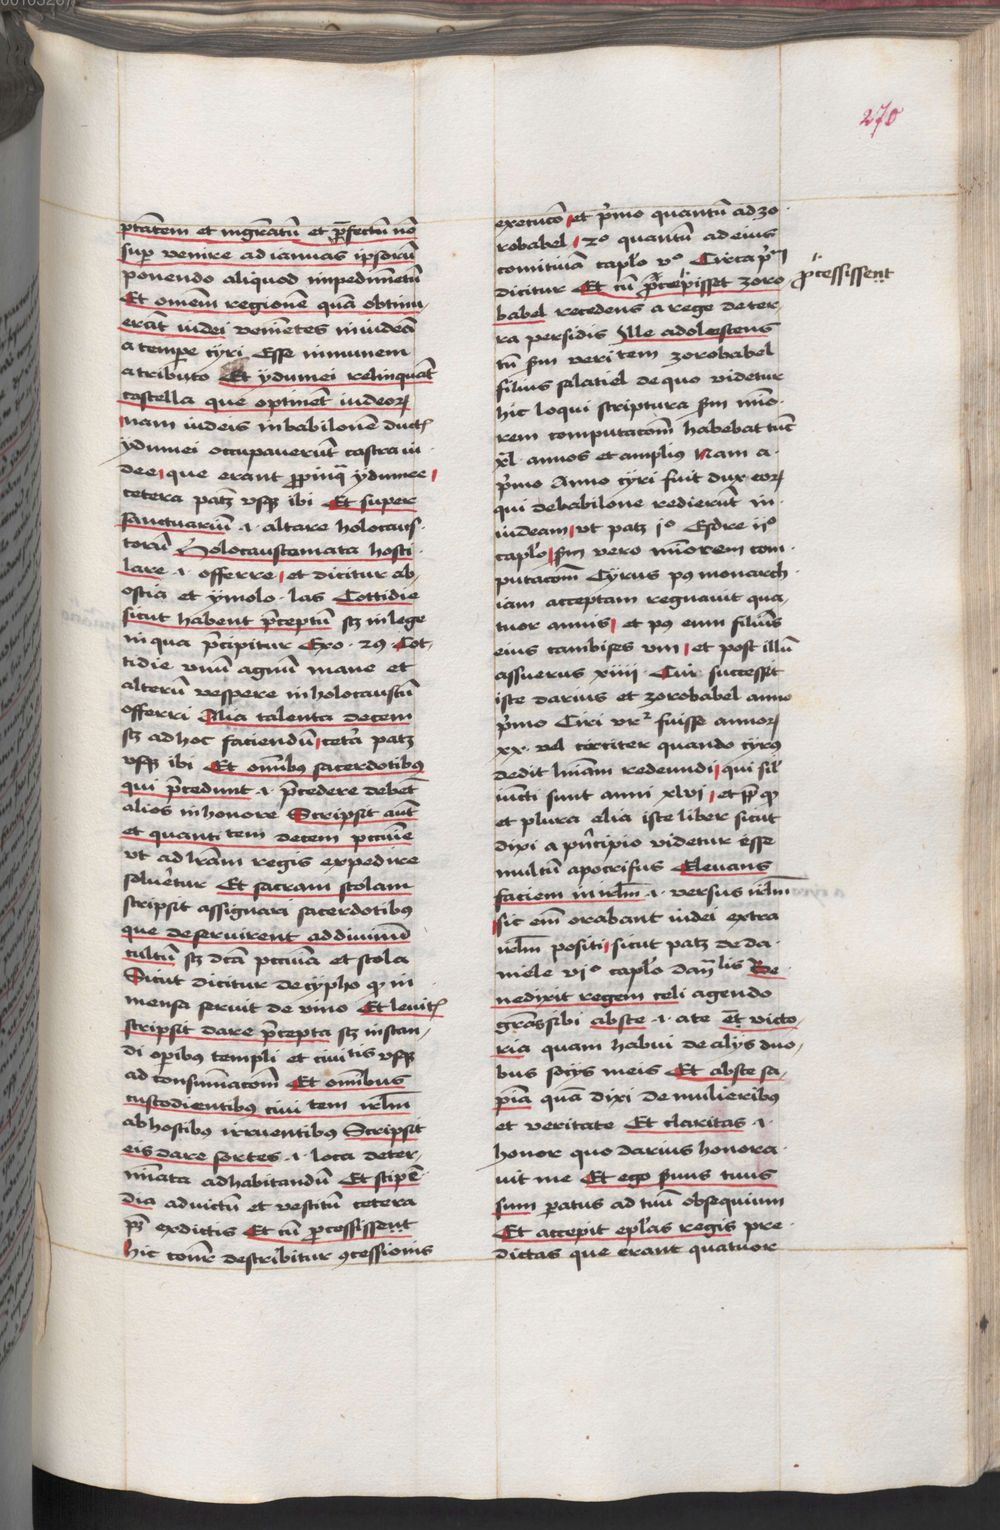 270
ptatem et mgratu et pfectu no
sup venire ad ianuas ipsoru
ponendo aliquod impedimetu
Et omem regione qua obtinu
erat iudei venietes in iudea
a tempe cyri Esse inmunem
a tributo Et ydumei relinquat
castella que optinet iudeor
nam iudeis in babilone duct
ydumei occupaverut castra iu
dee que erant ppinq ydumee
cetera patz vsqz ibi Et super
sanctuariu .i. altare holocaus
toru Holocaustomata hosti
lare .i. offerre et dicitur ab
ostia et ymolo . las Cottidie
sicut habent pceptu sz in lege
in qua pcipitur Exo . 29 Cot
tidie vnu agnu mane et
alteru vespere in holocaustu
offerri Alia talenta decem
sz ad hoc faciendu ceta patz
vsqz ibi Et omibus sacerdotibus
qui pcedunt .i. pcedere debet
alios in honore Scripsit aut
et quanti tem decem pecunie
vt ad lram regis expedire
solveretur Et sacram stolam
scripsit assignari sacerdotibus
que deservirent ad divinu
cultu sz dcam pecunia et stola
Sicut dicitur de cypho q in
mensa servit de vino Et levit
scripsit dare pcepta sz instan
di opibus templi et civi tis vsqz
ad consumacom Et omibus
custodientibus civi tem irlm
ab hostibus irruentibus Scripsit
eis dare sortes .i. loca deter
minata ad habitandu Et stipe
dia ad victu et vestitu cetera
pz ex dictis Et cu pcessissent
hic conr describitur 9cessionis
executo et pmo quantu ad zo
robabel 2o quantu ad eius
comitiua caplo vo Circa pm
dicitur Et cu pcepisset zoro
babel recedens a rege de ter
ra persidis Ille adolescens
tu sm veri tem zorobabel
filius salatiel de quo videtur
hic loqui scriptura sm mio
rem computacom habebat tuc
xl annos et amplius Nam a
pmo Anno cyri fuit dux eor
qui de babilone redierut in
iudeam vt patz io Esdre iio
caplo sm vero miorem com
putacom Cyrus pus monarch
iam acceptam regnauit qua
tuor annis et pus eum filius
eius cambises viii et post illu
assuerus xiiii Cui successit
iste darius et zorobabel anno
pmo Ciri vr fuisse annor
xx . vel circiter quando cyrus
dedit lniam redeundi qui sil
iucti sunt anni xlvi et pp q
et plura alia iste liber sicut
dixi a principio videtur esse
multu apocrifus Elevans
faciem in irlm .i. versus irlm
sic eni orabant iudei extra
irlm positi sicut patz de da
niele vio caplo danlis Be
nedixit regem celi agendo
gras sibi abste .i. a te est victo
ria quam habui de alijs duo
bus socijs meis Et abste sa
piia qua dixi de mulieribus
et veritate Et claritas .i.
honor quo darius honora
uit me Et ego suus tuus
sum paratus ad tuu obsequium
Et accepit eplas regis pre
dictas que erant quatuor
pcessissent